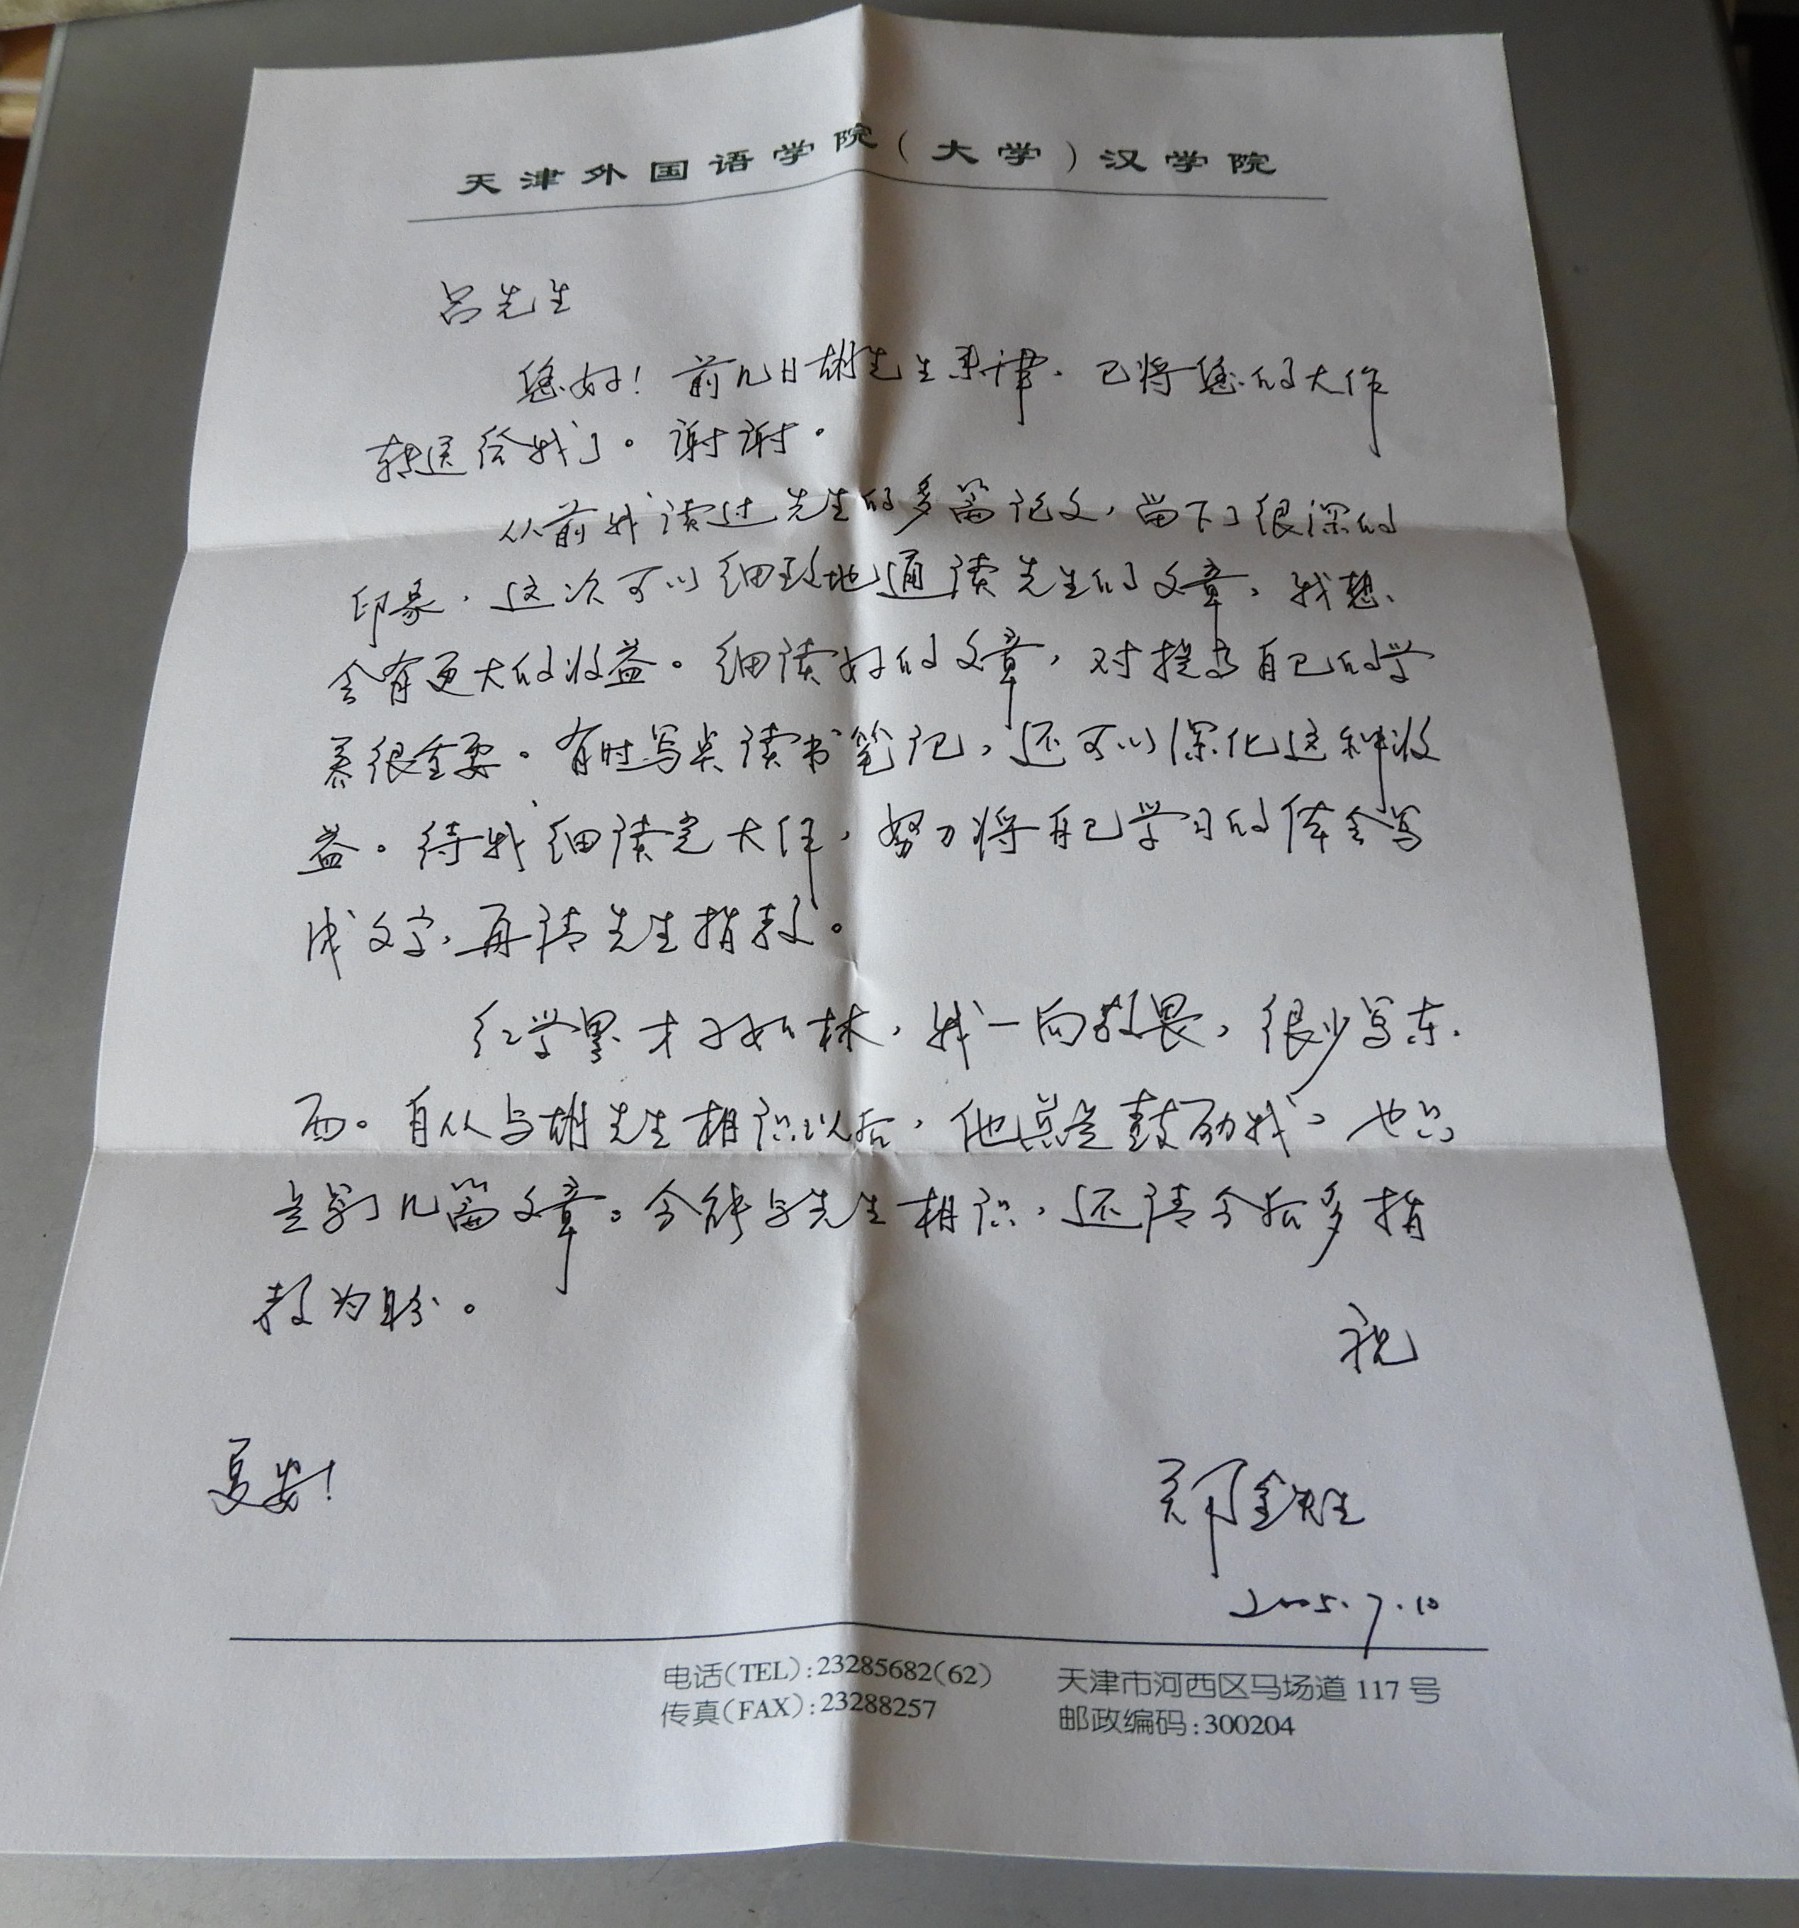 天津外国语学院（大学）汉学院
吕先生
您好！前几日胡先生来津，已将您的大作
转送给我了。谢谢。
从前我读过先生的多篇论文，留下了很深的
印象，这次可以细致地通读先生的文章，我想，
会有更大的收益。细读好的文章，对提高自己的学
养很重要。有时写点读书笔记，还可以深化这种收
益。待我细读完大作，努力将自己学习的体会写
成文字，再请先生指教。
红学界才子如林，我一向敬畏，很少写东
西。自从与胡先生相识以后，他总是鼓励我，也只
是写了几篇文章。今能与先生相识，还请今后多指
教为盼。
祝
夏安！
郑铁生
2005.7.10
电话(TEL):23285682(62)
传真(FAX):23288257
天津市河西区马场道 117 号
邮政编码:300204